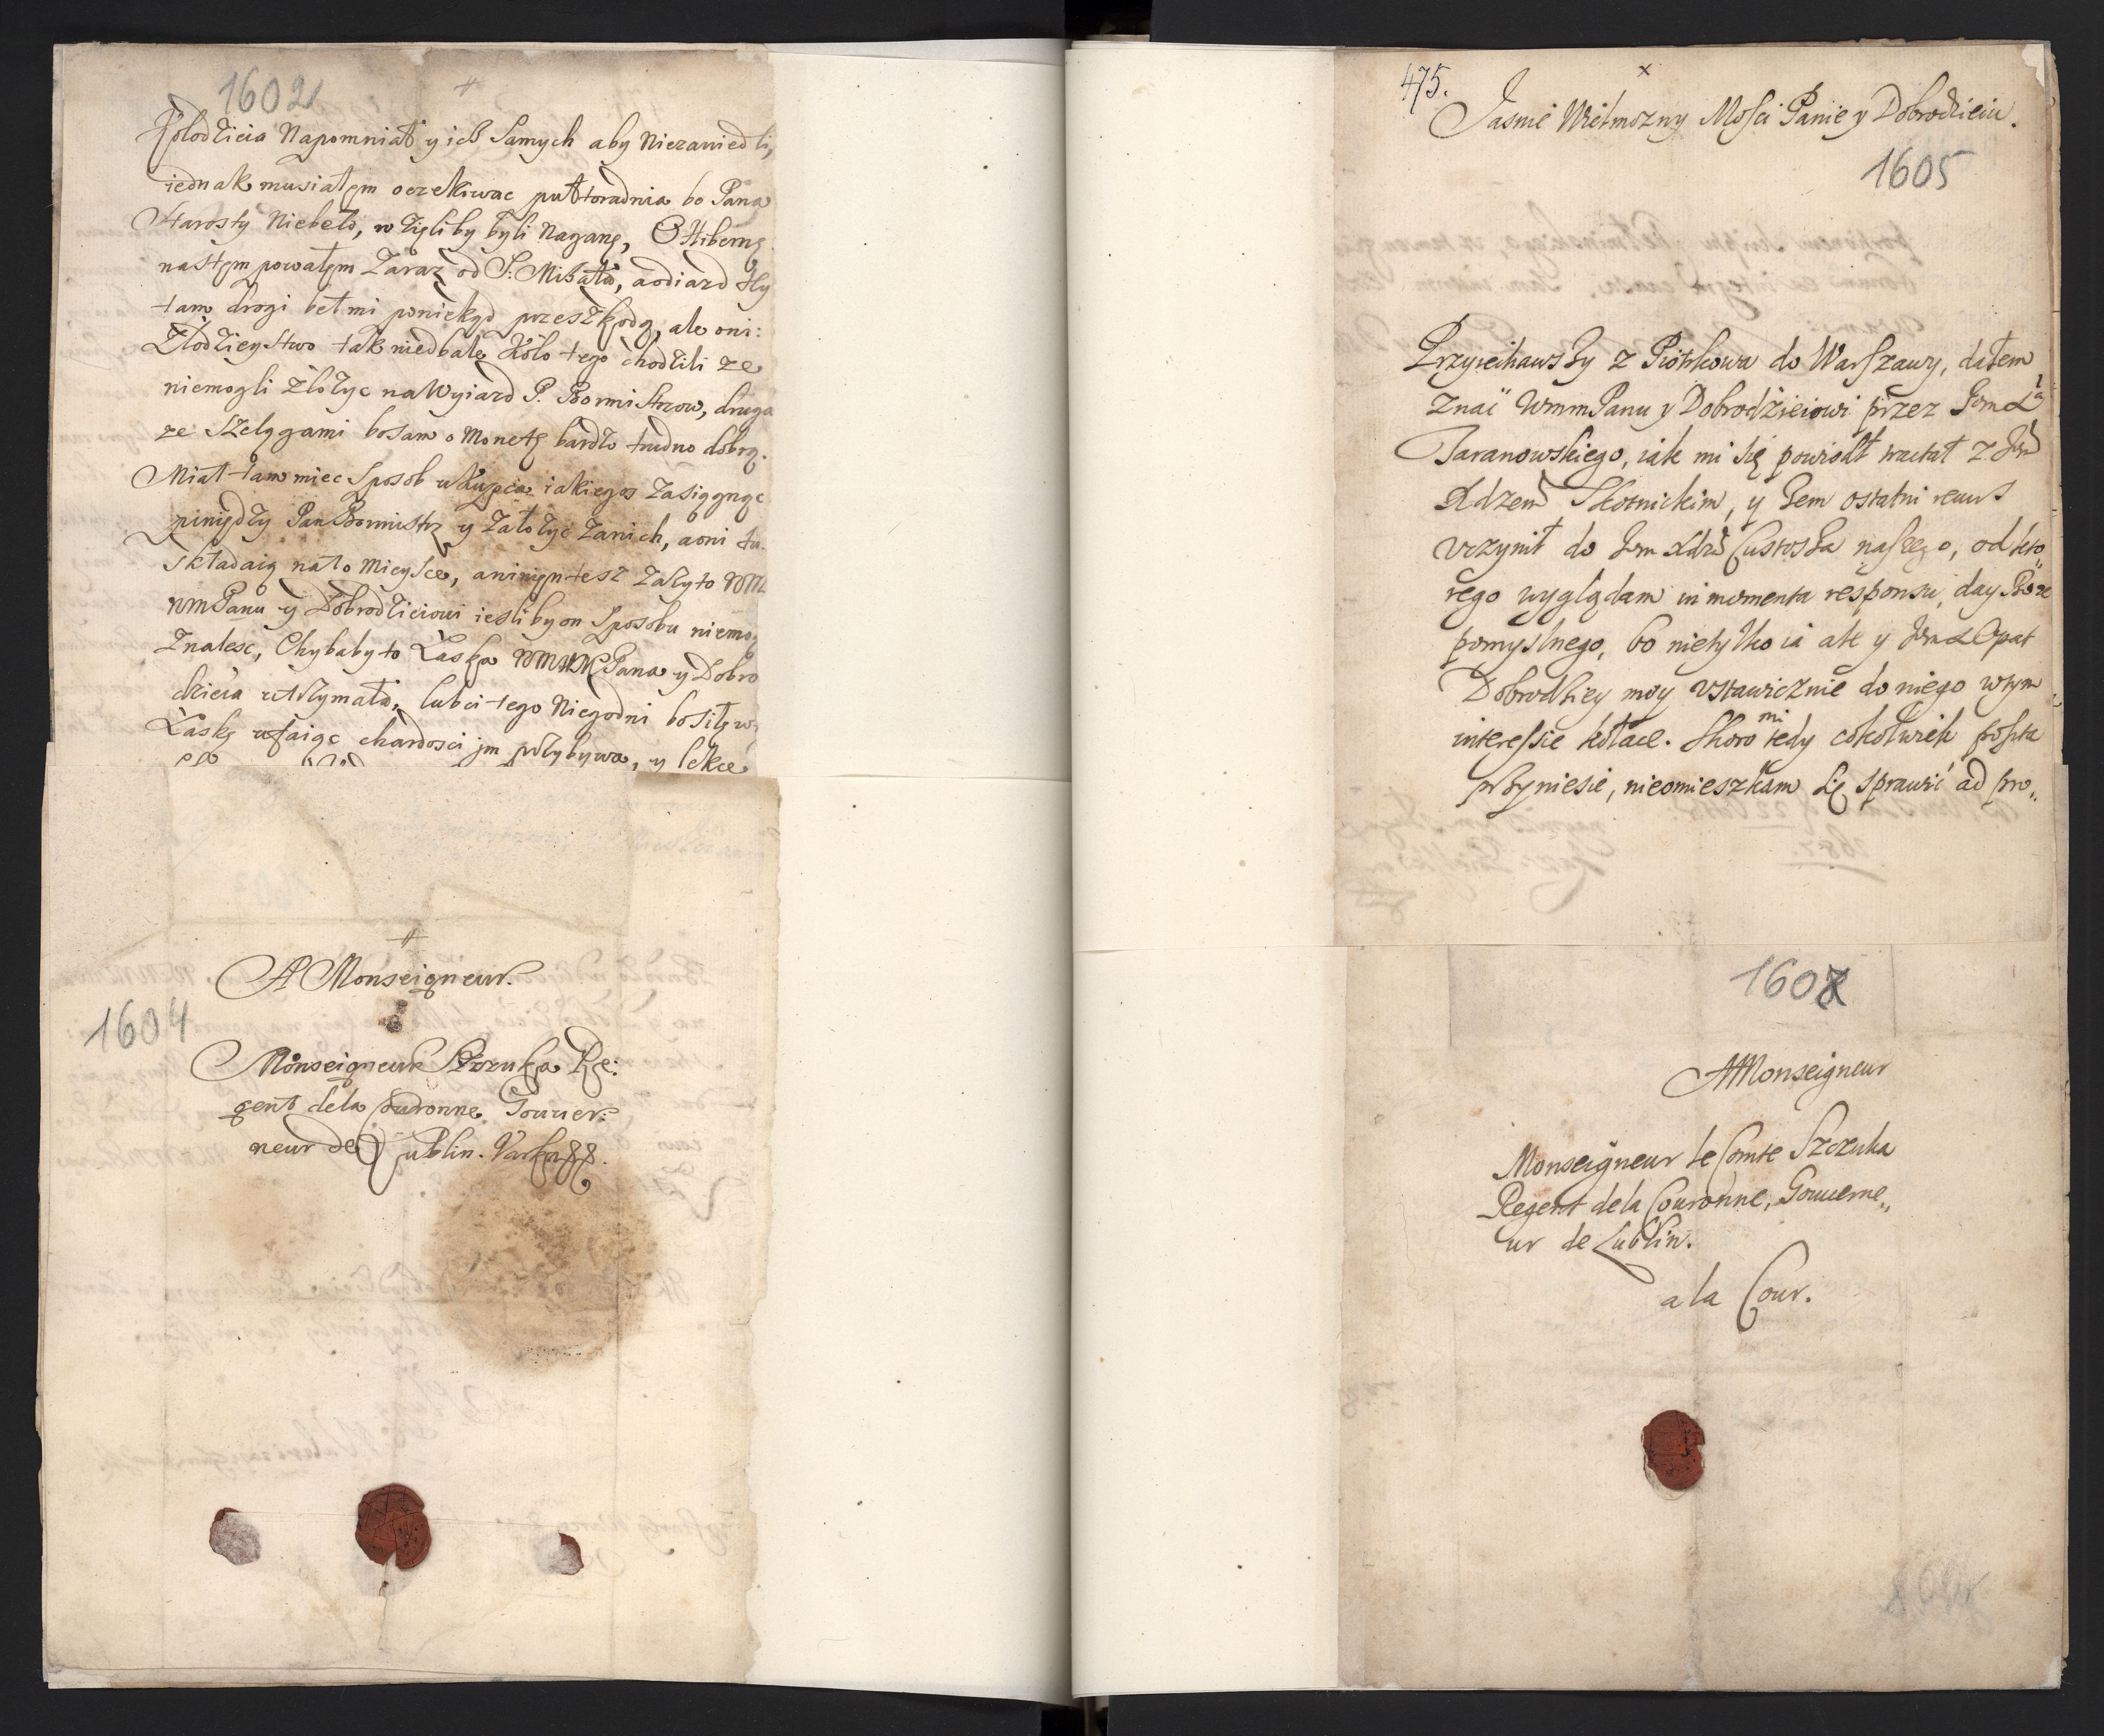 1602
Kołodzieia Napomniał y ich Samych aby Niezawiedli,
iednak musiałęm oczekiwac pułtoradnia bo Pana
Starosty Niebeło, wzięliby byli Naganę, O Hibernę
nastęmpowałęm Zaraz od S: Michała, aodiazd
tam drogi beł mi poniekąd przeszkodą, ale oni:
Złodzieystwo tak niedbale Koło tego chodzili ze
niemogli złożyc na Wyiazd P. Bormistrzow, druga
ze Szelągami bosam o Monetę bardzo trudno dobrą.
Miał tam miec Sposob u Kupca iakiegos Zasiągnąc
piniędzy Pan Bormistrz y Założyc Zanich, aoni tu
składaią nato Mieysce, aninięntesz Zaszyto WM
WMPanu y Dobrodzieiowi iesliby on Sposobu niemog
Znalesc, Chybaby to Łaska WMMMPana y Dobro
dzieia utrzymała, lubci tego Niegodni bosilę w
Łaskę ufaiąc chardosci jm przybywa, y lekce
A Monseigneur.
1604
Monseigneur Szczuka Re:
gent dela Couronne Gouuer:
neur de Lublin.
475.
Jasnie Wielmozny Mosci Panie y Dobrodzieiu.
1605
Przyiechawszy z Piotrkowa do Warszawy, dałem
znać WmmPanu y Dobrodzieiowi przez Jm X
Taranowskiego, iak mi się powiodł tractat z Jm
Xdzem Skotnickim, y Zem ostatni recurs
vczynił do Jm Xdza Custosza naszego, od kto
rego wyglądam in momenta responsu, day Boze
pomyslnego, bo nietylko ia ale y Jm X Opat
Dobrodziey moy vstawicznie do niego wtym
interessie kołace. Skoro mi tedy cokolwiek poszta
przyniesie, nieomieszkam się sprawić ad pro„
1607
A Monseigneur
Monseigneur le Comte Szczuka
Regent dela Couronne, Gouuerne„
ur de Lublin.
a la Cour.